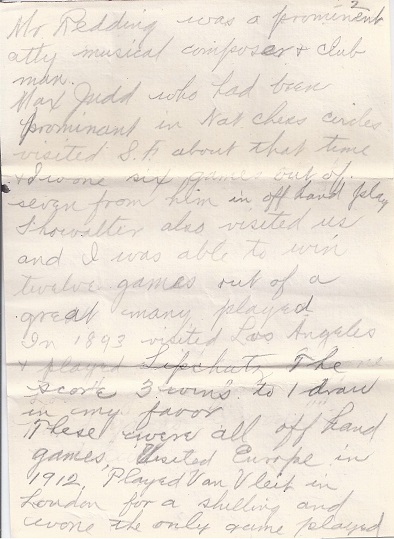 2
Mr Redding was a prominent
atty musical composer & club
man.
Max Judd who had been
prominant in Nat Chess circles
visited S.F. about that time
& I wone six games out of
seven from him in off hand play
Showalter also visited us
and I was able to win
twelve games out of a
great many played
In 1893 visited Los Angeles
& played Lipschutz The
score 3 wins to 1 draw
in my favor
These were all off hand
games, Visited Europe in
1912, Played Van Vleit in
London for a shilling and
wone the only game played